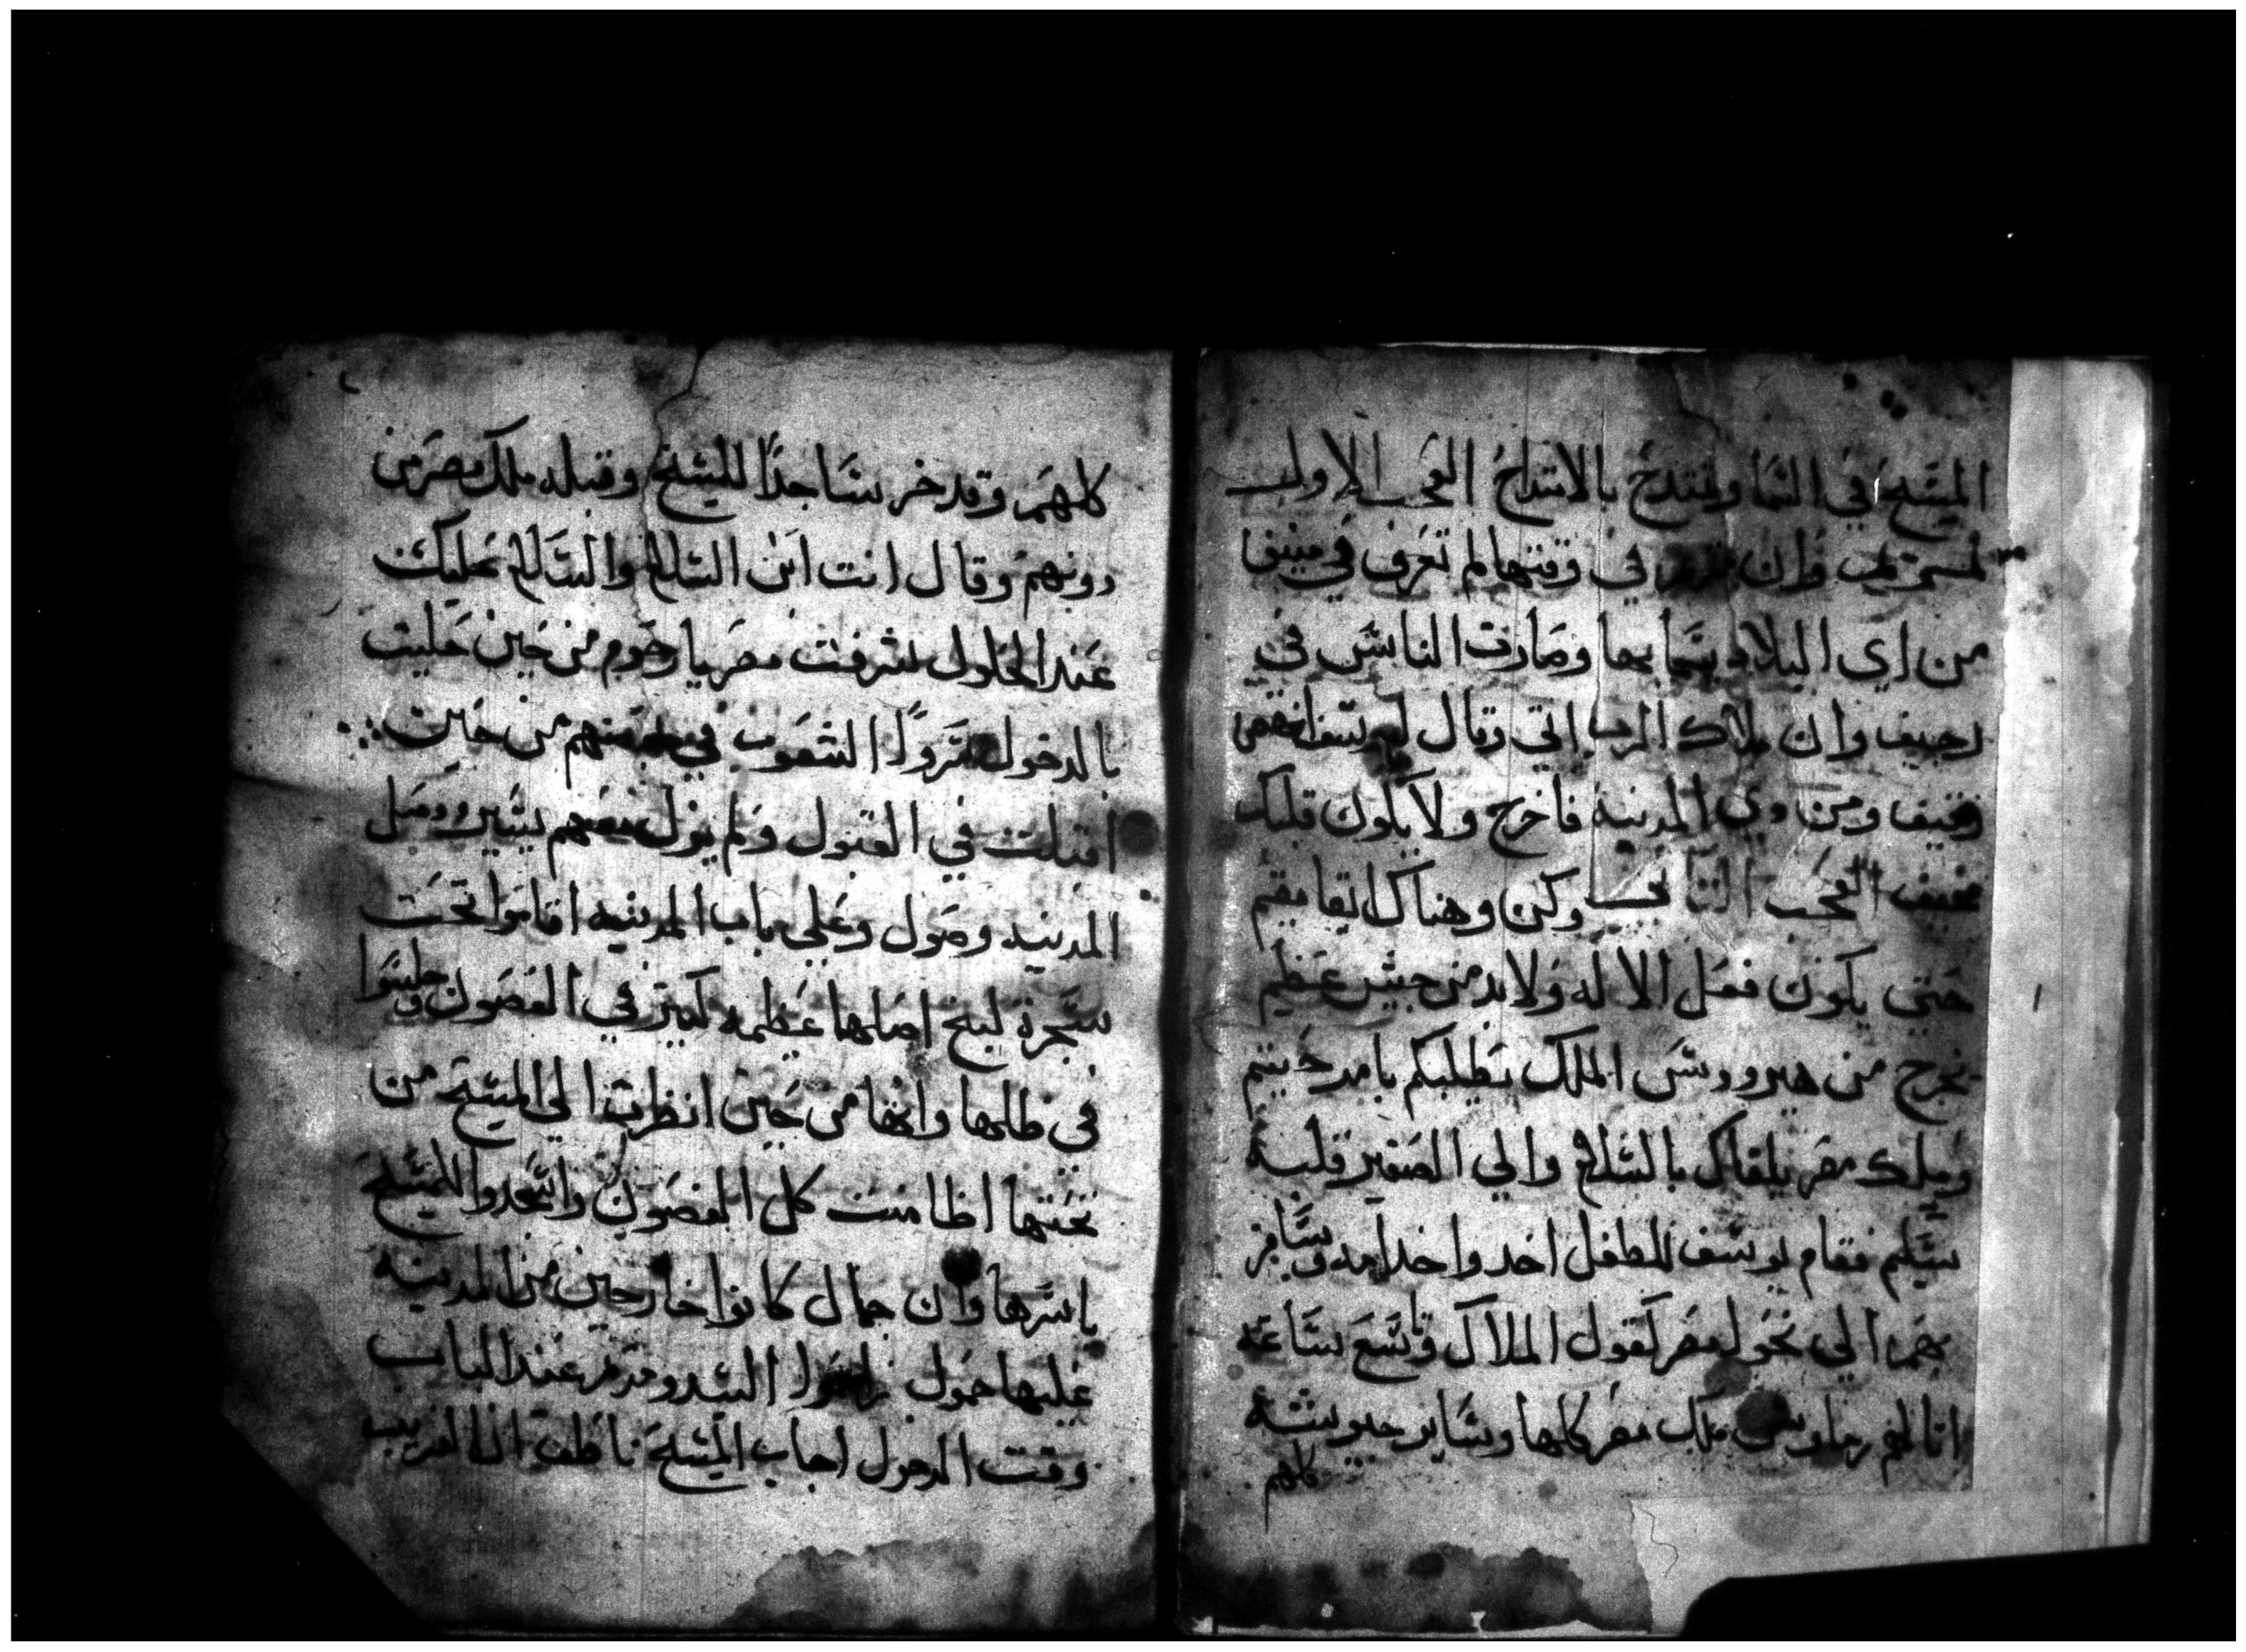 المسيح في السما ونمتدح بالامتداح العجب الاول
وان في وقتها لم تعرف في
من اي البلاد وصارت الناس في
رجيف وان ملاك الرب اتي وقال
ومن المدينه فاخرج ولا يكون قلبك
مخيف العجب التاني وكن وهناك
حتي يكون فعل الاله ولابد من جيش عظيم
تخرج من هيرودس الملك تطلبكم
وملك مصر يلقاك بالسلام والي الصغير قلبه
يسلم فقام يوسف للطفل اخد واخد امه وسافر
بهم الي نحو مصر كقول الملاك وتسع ساعه
اتا لهم ملك مصر كلها وساير جيوشه
كلهم
كلهم وقد خر ساجدًا للمسيح وقبله ملك مصر من
دونهم وقال انت ابن السلام والسلام عليك
عند الحلول شرفت مصر يا رحوم من حين حليت
بالدخول الشعوب في منهم من حين
اقبلت في القبول ولم يزل يسير وصل
المدينه وصول وعلي باب المدينه اقاموا تحت
شجرة لبخ اصلها عظيمه كبير في الغصون وجلسوا
في ظلها وانها من حين انظرت الي المسيح من
تحتها كل الغصون واسجدوا للمسيح
باسرها وان جمال كانوا خارجين من المدينه
عليها حمول عند الباب
وقت الدخول اجاب المسيح ناطق انا الغريب